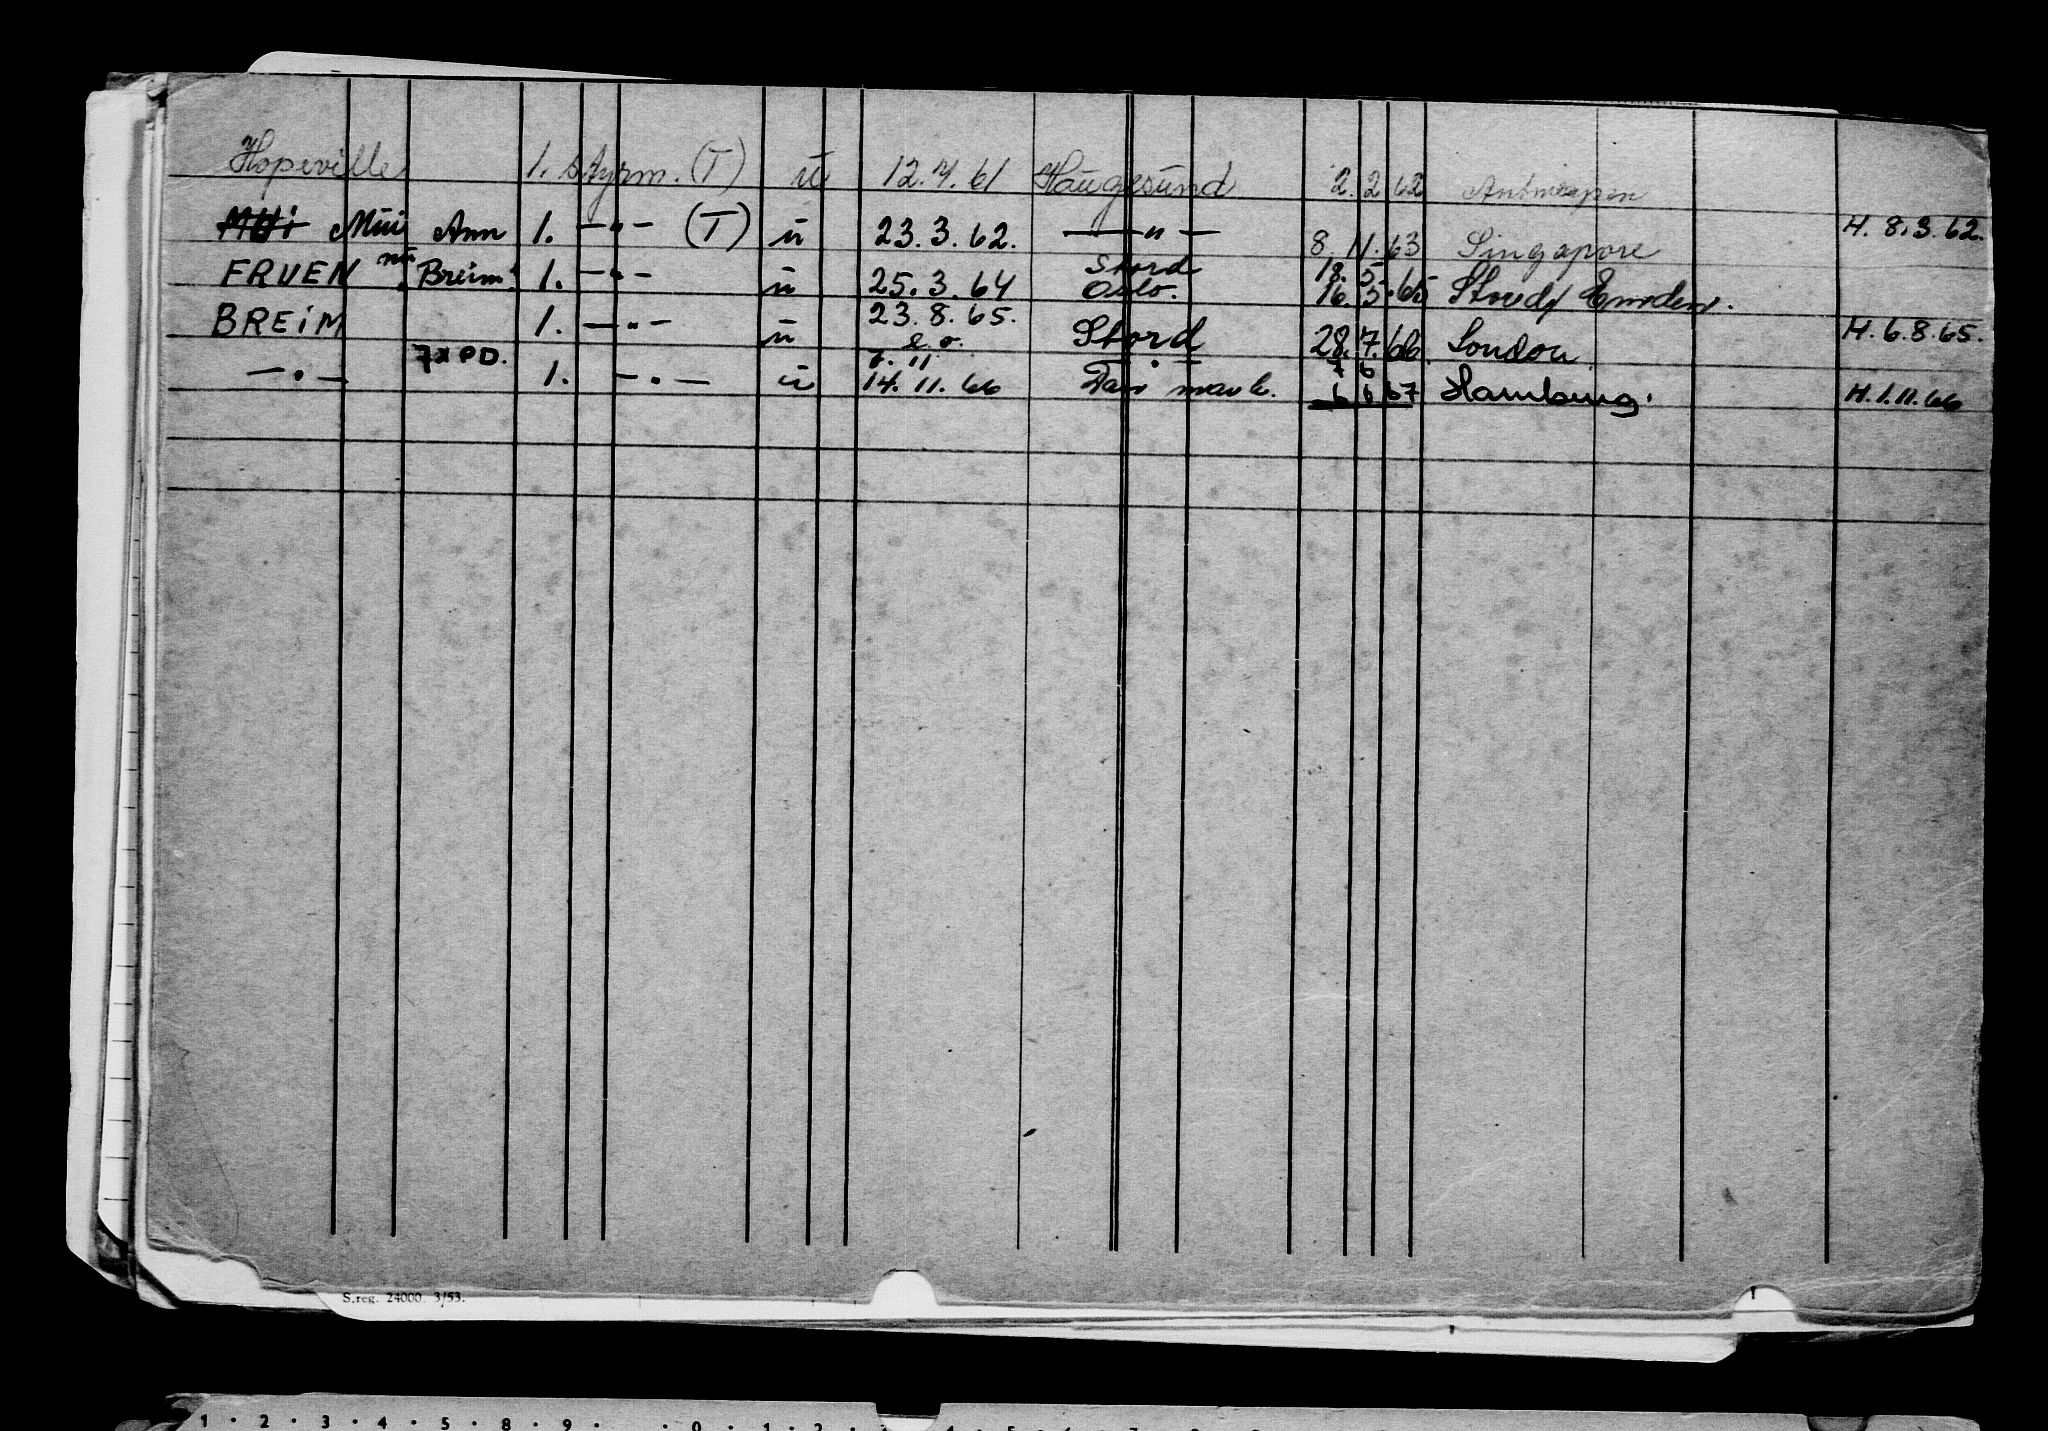 Hopeville 1. styrm. (T) ü 12.4.61 Haugesund 2.2.62 Antwerpen
Müi Ann 1. —"— (T) ü 23.3.62. —"— 8.11.63 Singapore H. 8.3.62.
FRUEN nü Breim 1. —"— ü 25.3.64 Stord Oslo. 18.5 16.5.65 Stord/Emden.
BREIM 1. —"— ü 23.8.65. Stord 28.7.66 London H. 6.8.65.
—"— 7x PD. 1. —"— ü 14.11.66 Danmark. 7 6 6 6 67 Hamburg. H. 1.11.66
S.reg. 24000. 3/53.
1 · 2 · 3 · 4 · 5 · 8 · 9 ·